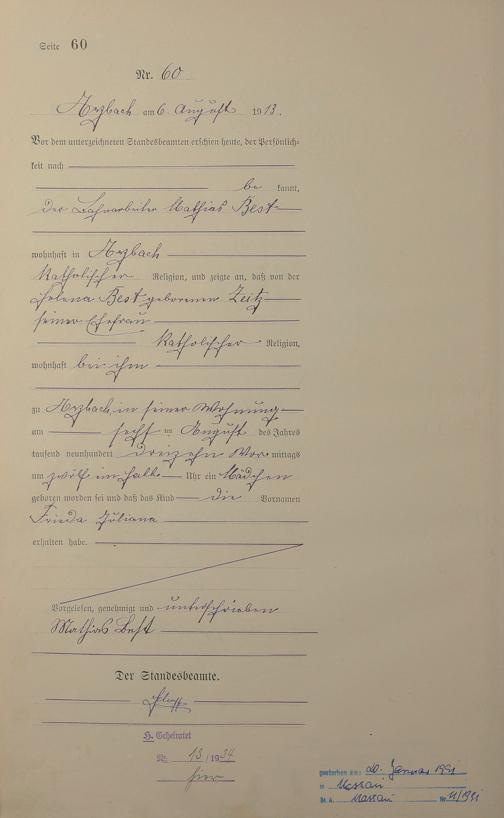 Seite 60
Nr. 60
Arzbach am 6. August 1913.
Vor dem unterzeichneten Standesbeamten erschien heute, der Persönlich-
keit nach
be kannt,
der Bahnarbeiter Mathias Best
wohnhaft in Arzbach
katholischer Religion, und zeigte an, daß von der
Helena Best geborenen Zeitz
seiner Ehefrau
katholischer Religion,
wohnhaft bei ihm
zu Arzbach in seiner Wohnung
am sechs ten August des Jahres
tausend neunhundert dreizehn Vor mittags
um zwölf ein halb Uhr ein Mädchen
geboren worden sei und daß das Kind die Vornamen
Frieda Juliana
erhalten habe.
Vorgelesen, genehmigt und unterschrieben
Mathias Best
Der Standesbeamte.
H. Geheiratet
Nr. 13/1934
hier
gestorben am: 20. Januar 1991
in Nassau
St. A. Nassau Nr. 11/1991